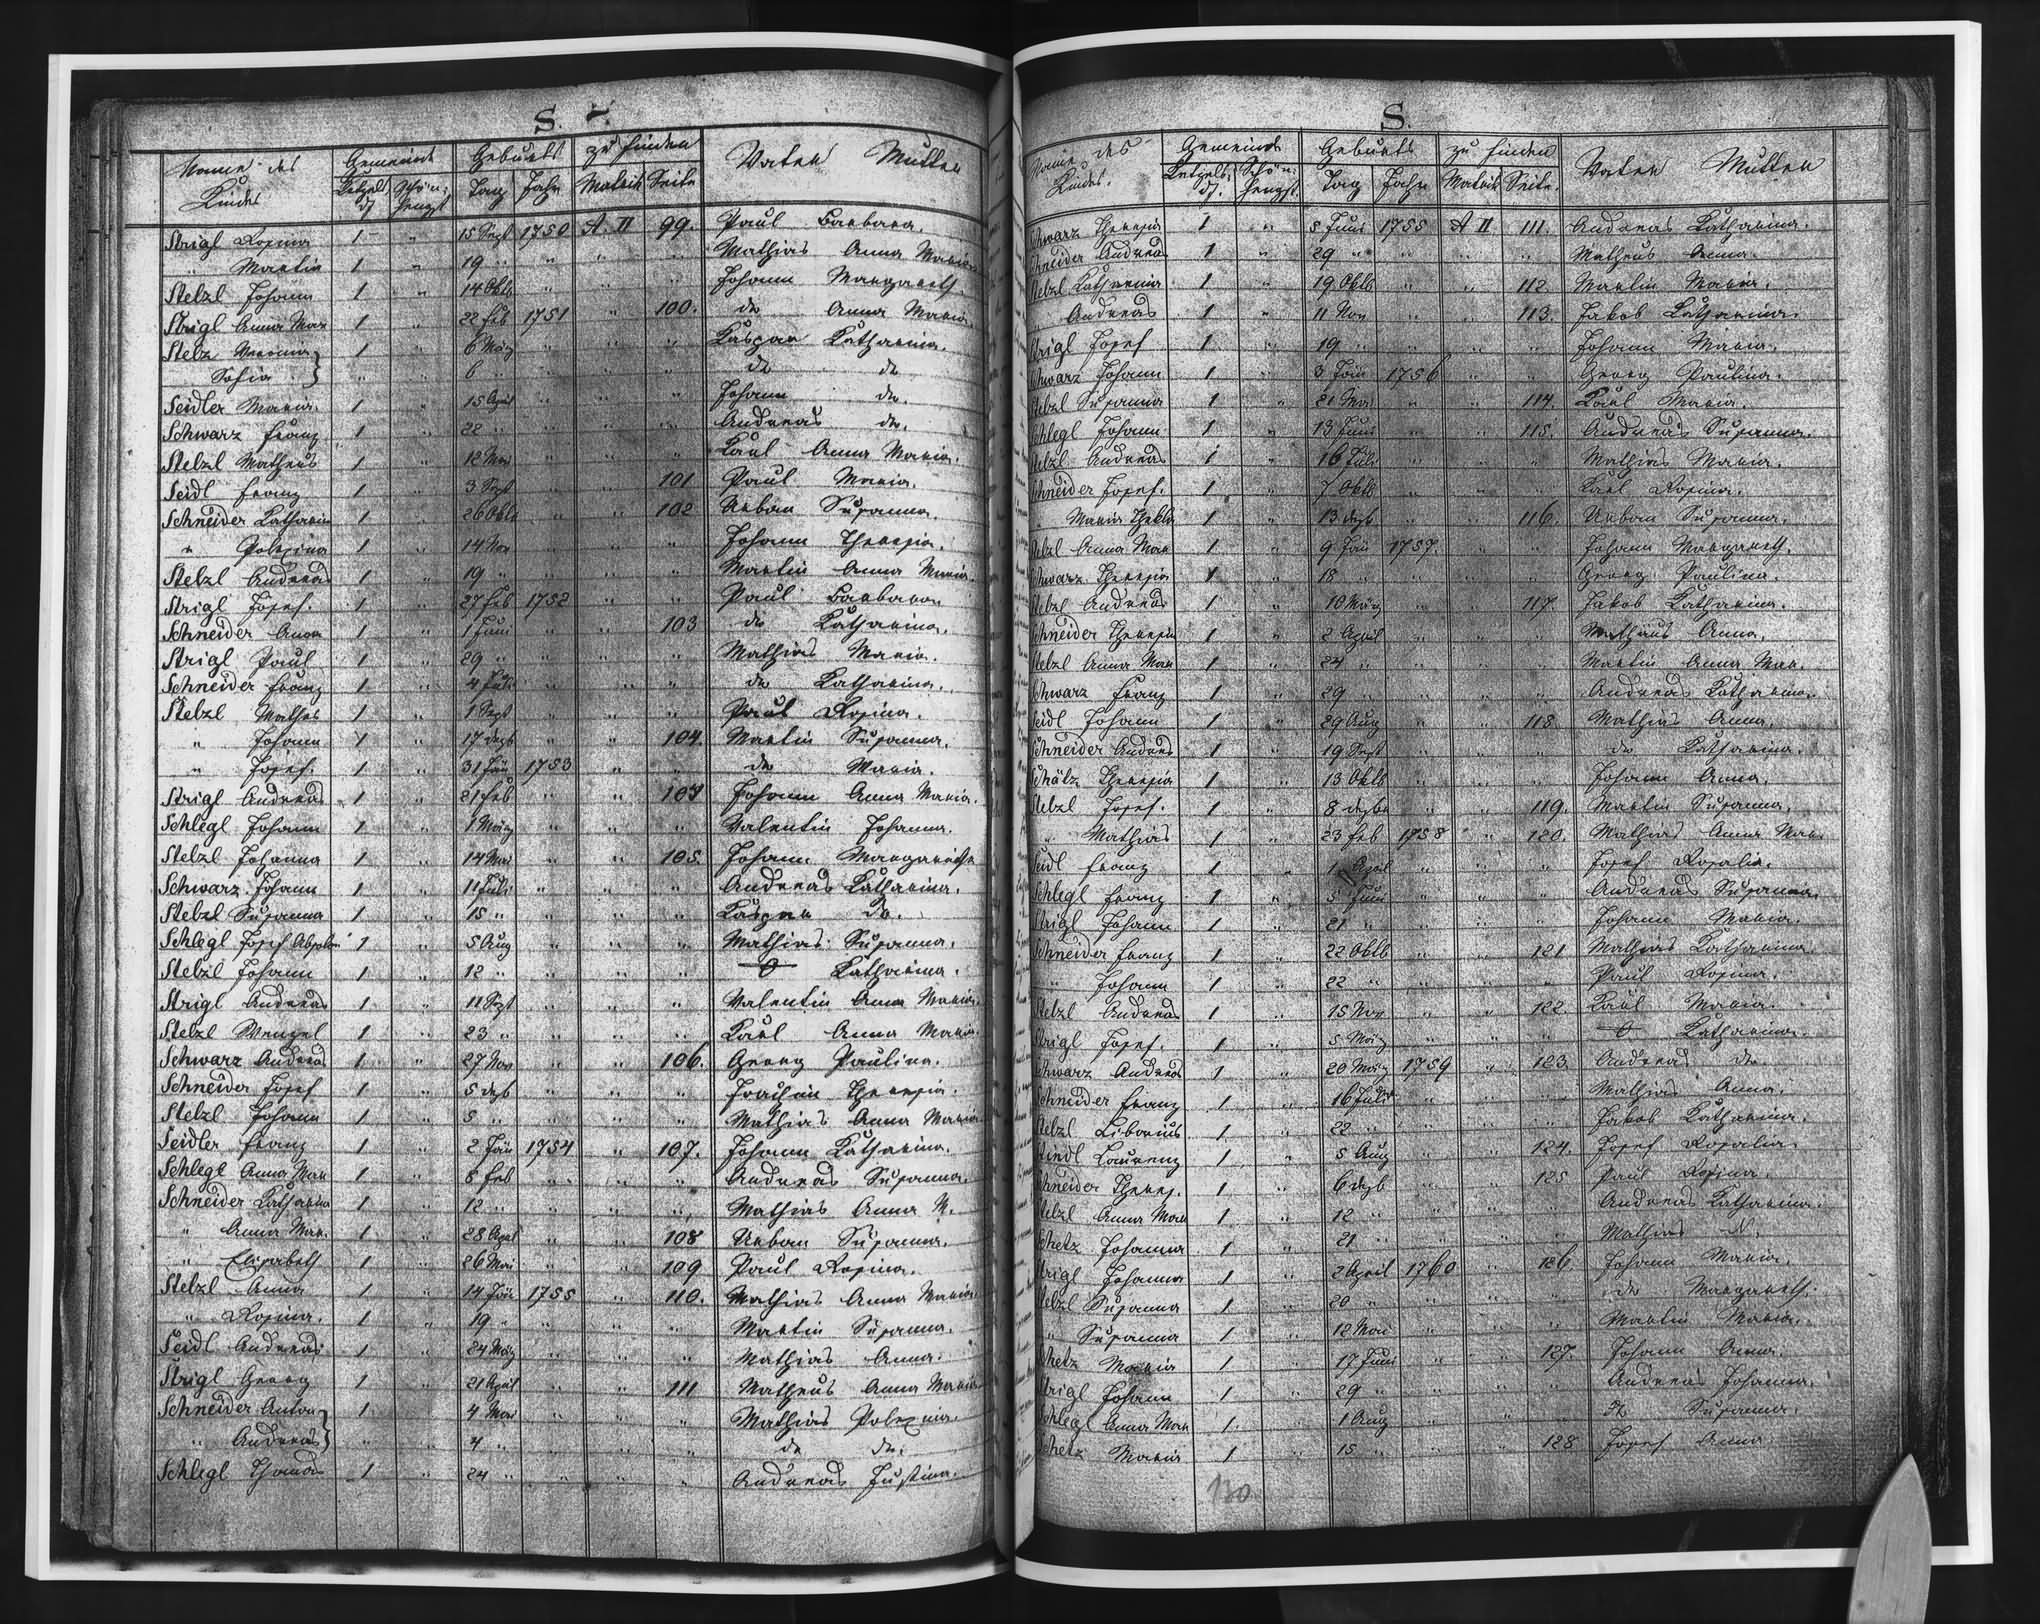 S.
Name des Kindes Gemeinde Ketzelsd. Schönhengst Geburts Tag Jahr zu finden Matrik Seite Vater Mutter
Strigl Rosina 1 " 15 Sept 1750 A. II 99. Paul Barbara.
" Martin 1 " 19 " " " " Mathias Anna Maria
Stelzl Johann 1 " 14 Oktb " " " Johann Margareth.
Strigl Anna Mar 1 " 22 Feb 1751 " 100. do Anna Maria.
Stelz Veronia } 1 " 6 März " " " Kaspar Katharina.
Sofia } " 6 " " " " do do
Seidler Maria. 1 " 15 April " " " Johann do.
Schwarz Franz 1 " 22 " " " " Andreas do.
Stelzl Matheus 1 " 12 Mai " " " Karl Anna Maria.
Seidl Franz 1 " 3 Sept " " 101 Paul Maria.
Schneider Katharina 1 " 26 Oktb " " 102 Urban Susanna.
" Polexina 1 " 14 Nov " " " Johann Theresia.
Stelzl Andreas 1 " 19 " " " " Martin Anna Maria.
Strigl Josef. 1 " 27 Feb 1752 " " Paul Barbara
Schneider Anna 1 " 1 Juni " " 103 do Katharina.
Strigl Paul 1 " 29 " " " " Mathias Maria.
Schneider Franz 1 " 4 Juli " " " do Katharina.
Stelzl Mathes 1 " 1 Sept " " " Paul Rosina.
" Johann 1 " 17 dezb " " 104. Martin Susanna.
" Josef. 1 " 31 Jän 1753 " " do Maria.
Strigl Andreas 1 " 21 Feb " " 104 Johann Anna Maria.
Schlegl Johann 1 " 1 März " " " Valentin Johanna.
Stelzl Johanna 1 " 14 Mai " " 105. Johann Margaretha
Schwarz Johann 1 " 11 Juli " " " Andreas Katharina.
Stelzl Susanna 1 " 15 " " " " Kaspar do.
Schlegl Josef 1 " 5 Aug " " " Mathias Susanna.
Stelzl Johann 1 " 12 " " " " 0 Katharina.
Strigl Andreas 1 " 11 Sept " " " Valentin Anna Maria.
Stelzl Wenzel 1 " 23 " " " " Karl Anna Maria.
Schwarz Andreas 1 " 27 Nov " " 106. Georg Paulina.
Schneider Josef 1 " 5 dezb " " " Joachim Theresia.
Stelzl Johann 1 " 5 " " " " Mathias Anna Maria
Seidler Franz 1 " 2 Jän 1754 " 107. Johann Katharina.
Schlegl Anna Mar 1 " 6 Feb " " " Andreas Susanna.
Schneider Katharina 1 " 12 " " " " Mathias Anna M.
" Anna Mar. 1 " 28 April " " 108 Urban Susanna.
" Elisabeth 1 " 26 Mai " " 109 Paul Rosina.
Stelzl Anna 1 " 14 Jän 1755 " 110. Mathias Anna Maria
" Rosina. 1 " 19 " " " " Martin Susanna.
Seidl Andreas 1 " 24 März " " " Mathias Anna.
Strigl Georg 1 " 21 April " " 111 Matheus Anna Maria
Schneider Anton } 1 " 4 Mai " " " Mathias Polexina.
" Andreas } " " 4 " " " " do do.
Schlegl Thomas 1 " 24 " " " " Andreas Justina.
S.
Name des Kindes. Gemeinde Ketzelsd. Schönhengst. Geburts Tag Jahr zu finden Matrik Seite. Vater Mutter
Schwarz Theresia 1 " 5 Juni 1755 A II 111. Andreas Katharina.
Schneider Andreas 1 " 29 " " " " Matheus Anna.
Stelzl Katharina 1 " 19 Oktb " " 112. Martin Maria.
Andreas 1 " 11 Nov " " 113. Jakob Katharina.
Strigl Josef 1 " 19 " " " " Johann Maria.
Schwarz Johann 1 " 3 Jän 1756 " " Georg Paulina.
Stelzl Susanna 1 " 21 Mai " " 114. Karl Maria.
Schlegl Johann 1 " 13 Juni " " 115. Andreas Susanna.
Stelzl Andreas 1 " 16 Juli " " " Mathias Maria.
Schneider Josef. 1 " 7 Oktb " " " Karl Rosina.
" Maria Thekla 1 " 13 dezb " " 116. Urban Susanna.
Stelzl Anna Mar 1 " 9 Jän 1757. " " Johann Margareth.
Schwarz Theresia 1 " 18 " " " " Georg Paulina.
Stelzl Andreas 1 " 10 März " " 117. Jakob Katharina.
Schneider Theresia 1 " 2 April " " " Mathäus Anna.
Stelzl Anna Mar 1 " 24 " " " " Martin Anna Mar.
Schwarz Franz 1 " 29 " " " " Andreas Katharina.
Seidl Johann 1 " 29 Aug " " 118. Mathias Anna.
Schneider Andreas 1 " 19 Sept " " " do Katharina.
Schätz Theresia 1 " 13 Oktb " " " Johann Anna.
Stelzl Josef. 1 " 8 dezbr " " 119. Martin Susanna.
" Mathias 1 " 23 Feb 1758 " 120. Mathias Anna Mar
Seidl Franz 1 " 1 April " " " Josef Rosalia.
Schlegl Franz 1 " 5 Juni " " " Andreas Susanna.
Strigl Johann 1 " 21 " " " " Johann Maria.
Schneider Franz 1 " 22 Oktb " " 121 Mathias Katharina
" Johann 1 " 22 " " " " Paul Rosina.
Stelzl Andreas 1 " 15 Nov " " 122. Karl Maria.
Strigl Josef. 1 " 5 März " " " 0 Katharina.
Schwarz Andreas 1 " 20 März 1759 " 123. Andreas do
Schneider Franz 1 " 16 Juli " " " Mathias Anna.
Stelzl Liborius 1 " 22 " " " " Jakob Katharina.
Seidl Laurenz 1 " 5 Aug " " 124. Josef Rosalia.
Schneider Theres. 1 " 6 dezb " " 125 Paul Rosina.
Stelzl Anna Mar 1 " 12 " " " " Andreas Katharina.
Schetz Johanna 1 " 21 " " " " Mathias N.
Strigl Johanna 1 " 2 April 1760 " 126 Johann Maria.
Stelzl Susanna 1 " 20 " " " " do Margareth.
" Susanna 1 " 12 Mai " " " Martin Maria.
Schetz Maria 1 " 17 Juni " " 127. Johann Anna.
Strigl Johann 1 " 29 " " " " Andreas Johanna.
Schlegl Anna Mar 1. " 1 Aug " " " Susanna.
Schetz Maria 1 " 15 " " " 128 Josef Anna